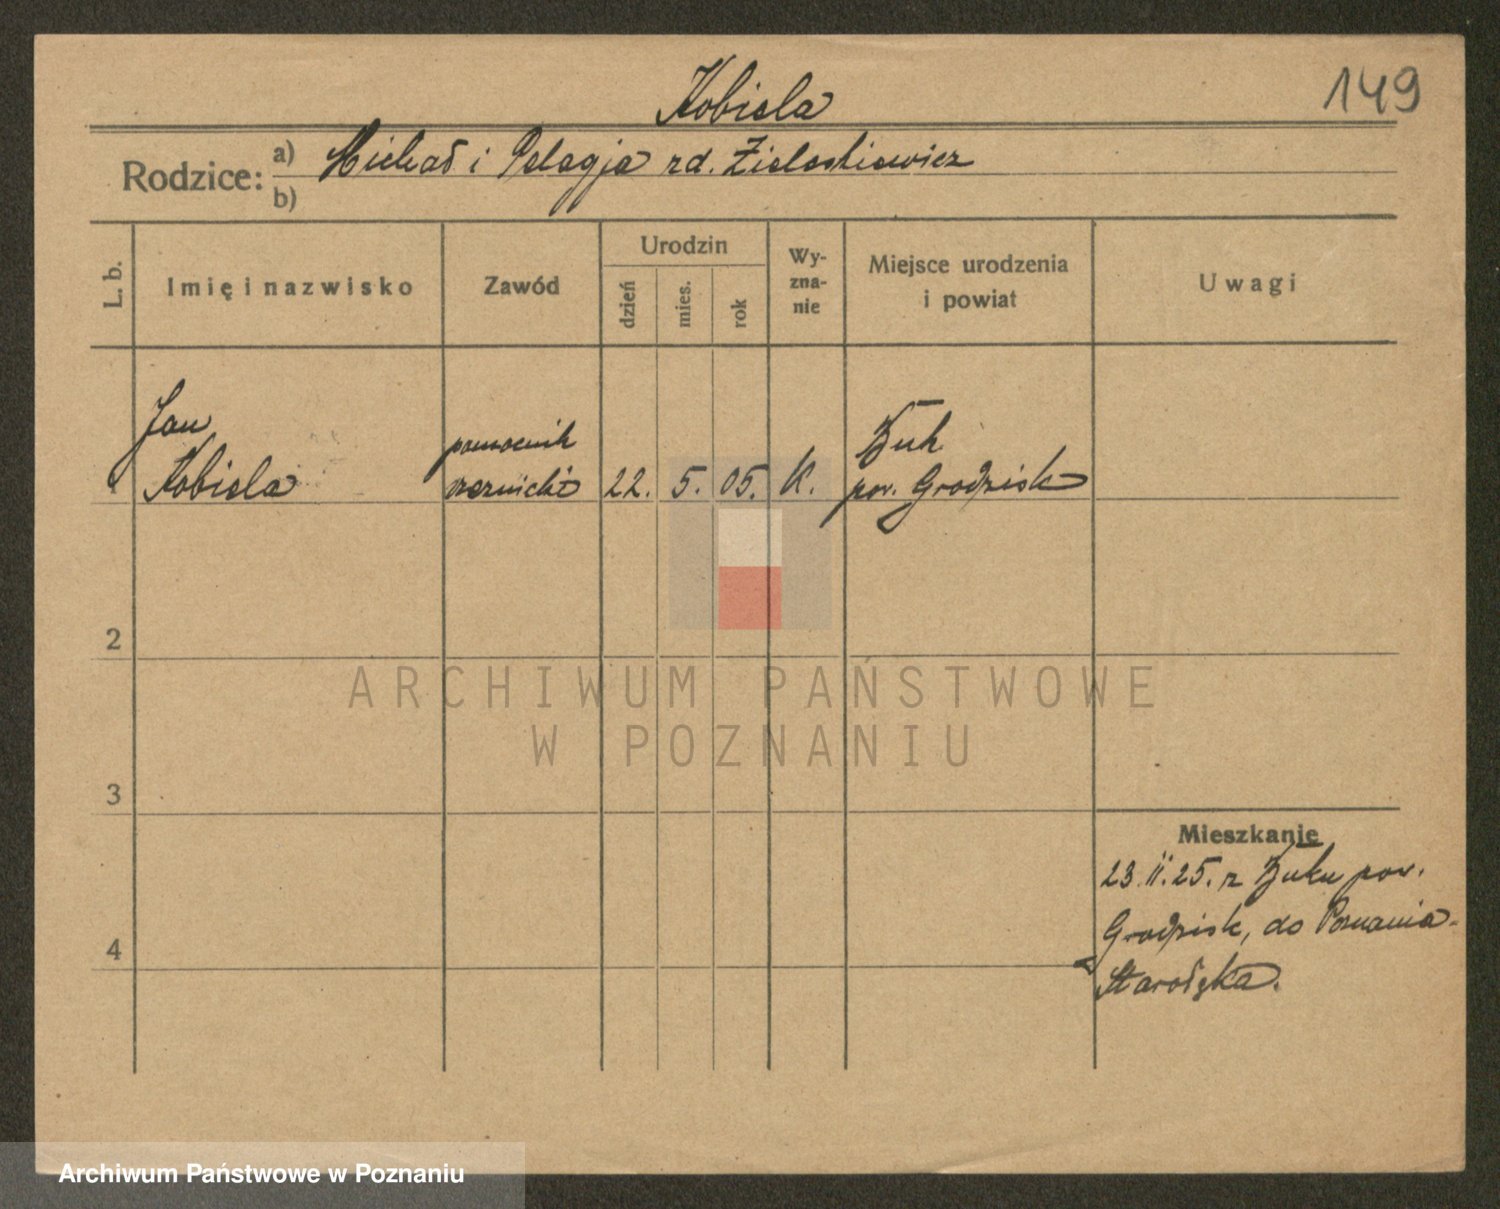 Kobiela
149
Rodzice:
a) Michał i Pelagja zd. Zieleskiewicz
b)
L. b.
Imię i nazwisko
Zawód
Urodzin
dzień
mies.
rok
Wy-
zna-
nie
Miejsce urodzenia
i powiat
Uwagi
Jan
Kobiela
pomocnik
rzeźnicki
22. 5. 05. K.
Buk
pow. Grodzisk
2
3
4
Mieszkanie
23.II.25. z Buku pow.
Grodzisk, do Poznania-
Starołęka.
ARCHIWUM PAŃSTWOWE
W POZNANIU
Archiwum Państwowe w Poznaniu